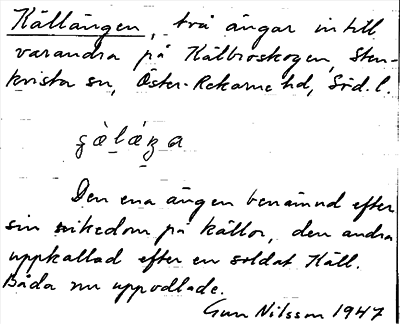 Källängen, två ängar intill
varandra på Kälbroskogen, Sten-
krista sn, Öster-Rekarne hd, Söd. l.
Den ena ängen benämnd efter
sin rikedom på källor, den andra
uppkallad efter en soldat Käll.
Båda nu uppodlade.
Gun Nilsson 1947